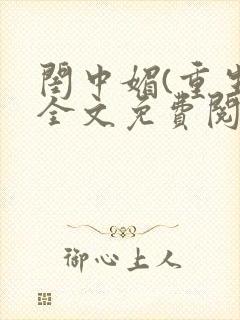 閨中媚(重生
全文免費閱
御心上人